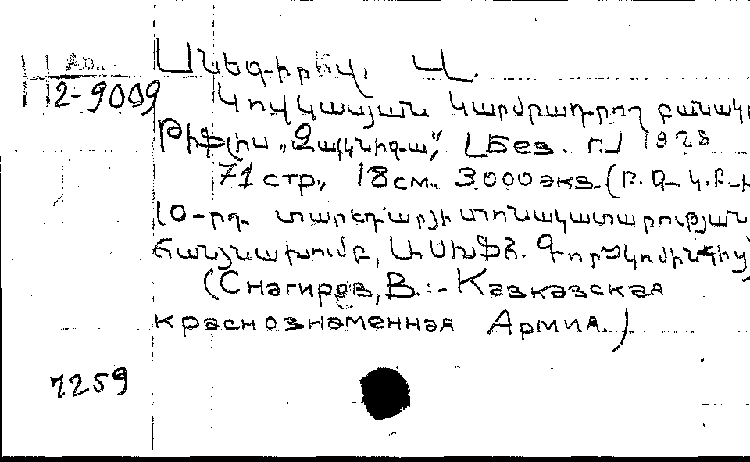 Ար.
II 2-9009
Սնեգիրև, Վ.
Կովկասյան Կարմրադրոշ բանակ
Թիֆլիս „Զակկնիգա“, [Без. г.] 1928
71 стр., 18 см. 3.000 экз. (
10-րդ տարեդարձի տոնակատարության
հանձնախումբ,
(Снегирев, В. :- Кавказская
краснознаменная Армия.)
7259